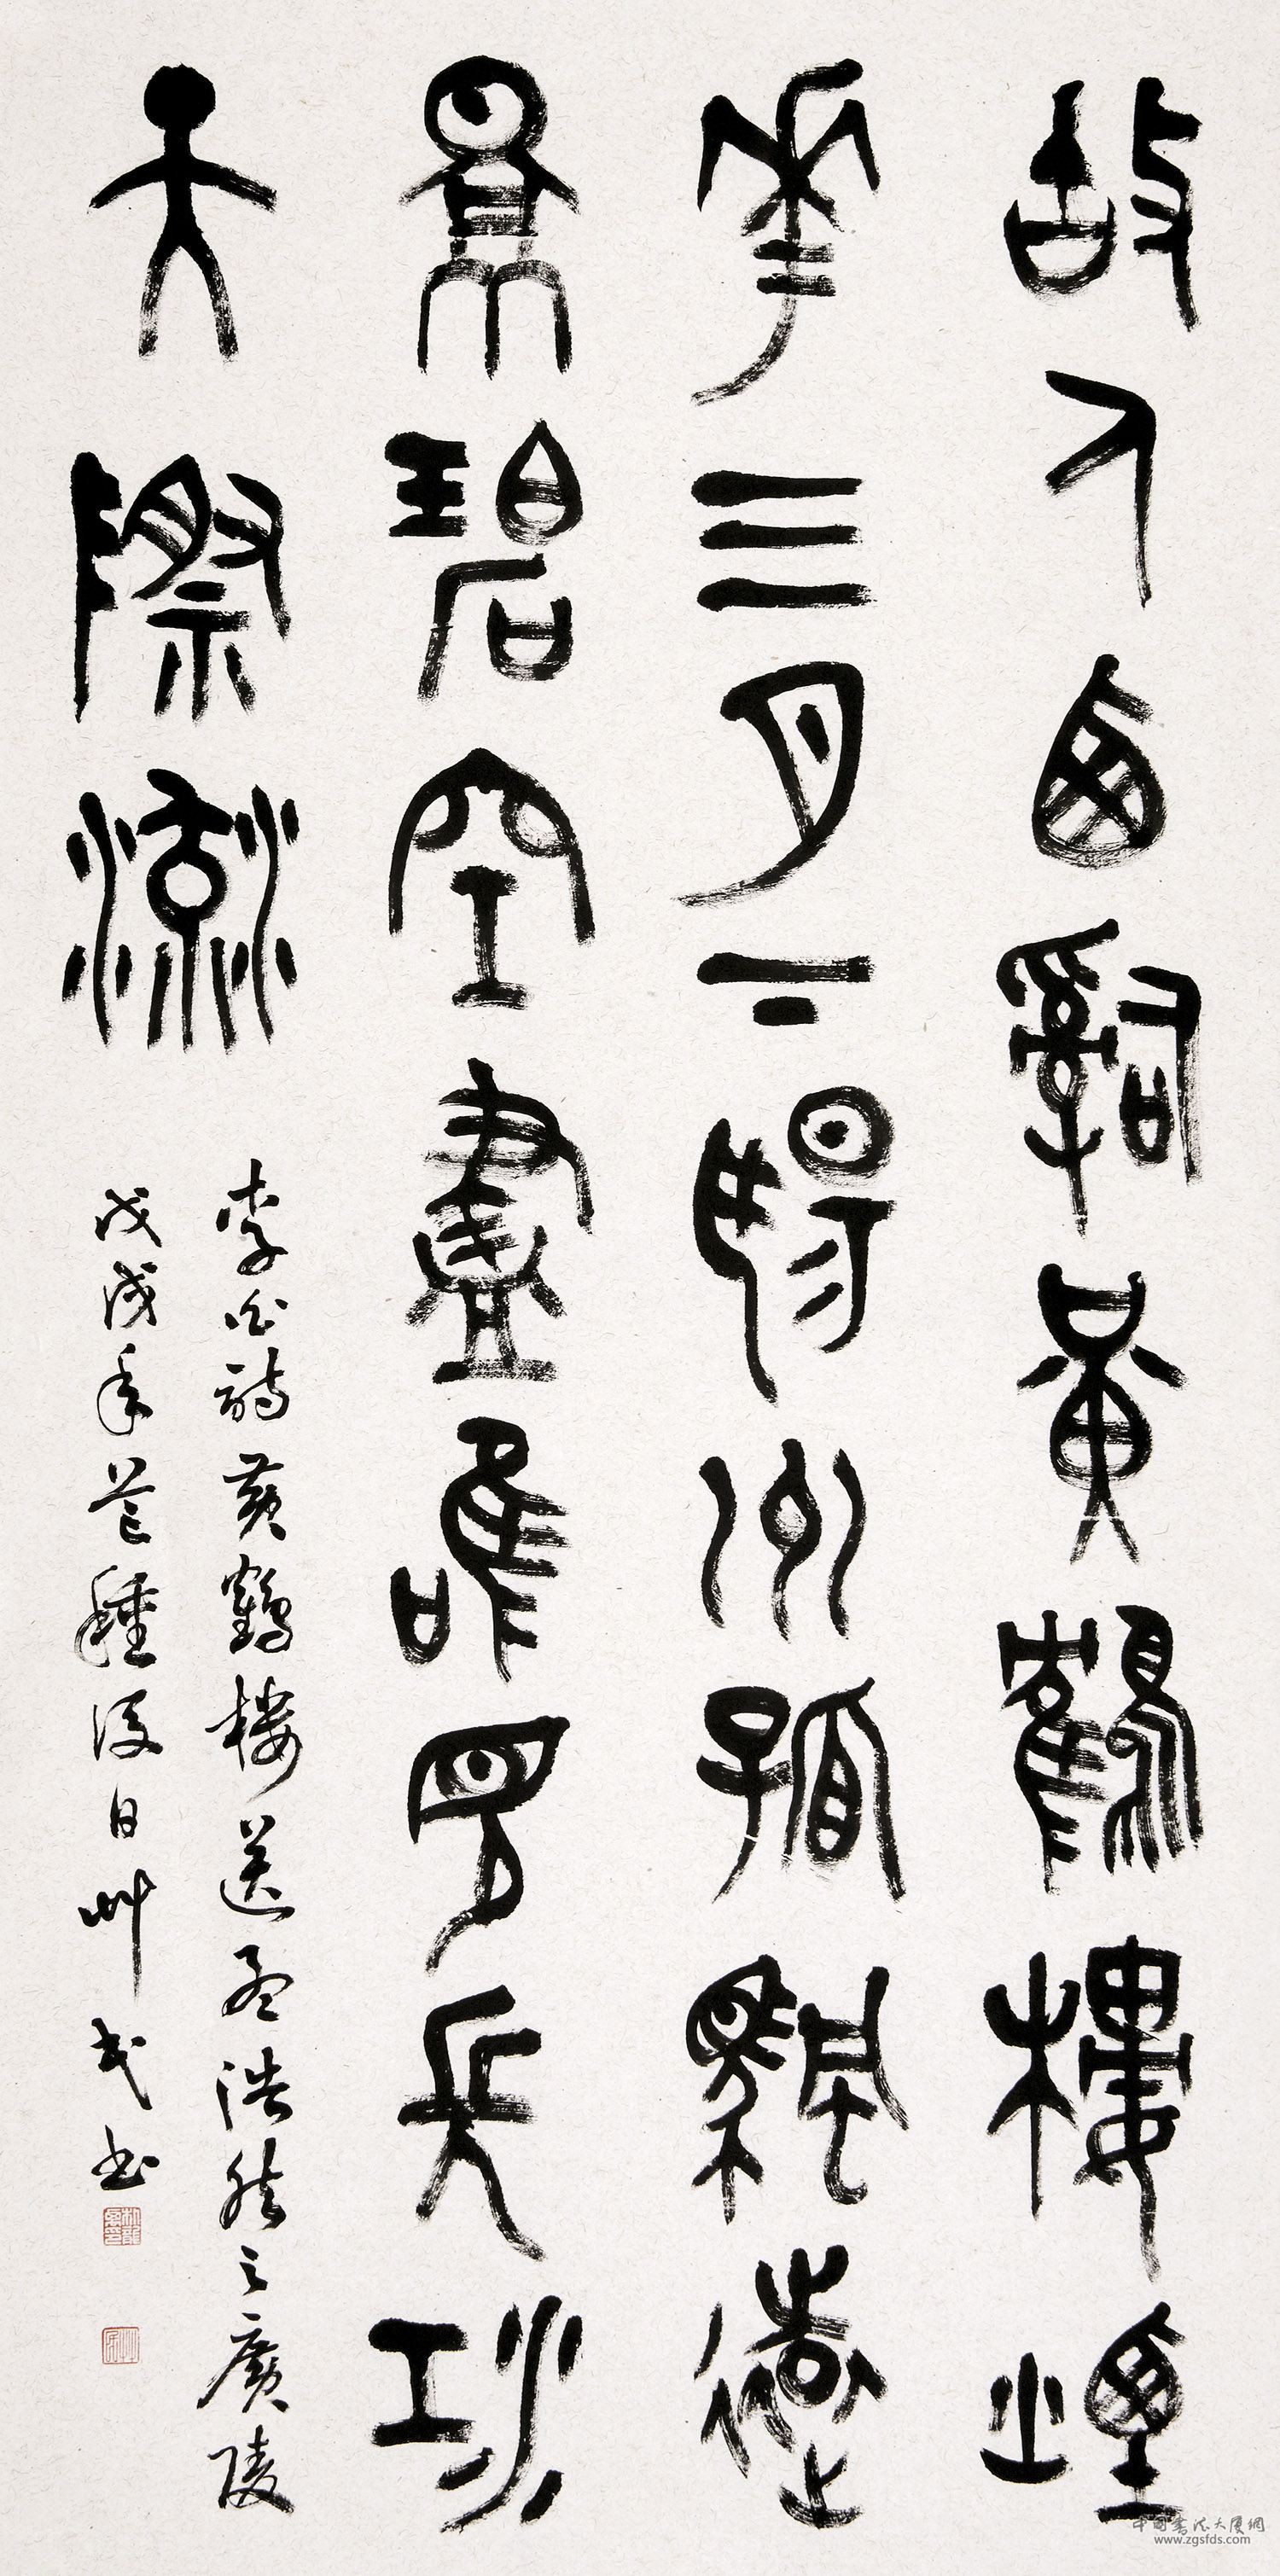 故人西辭黃鶴樓煙
花三月下揚州孤帆遠
景碧空盡唯見長江
天際流
李白詩黃鶴樓送孟浩然之廣陵
戊戌年芒種後日艸弋书
中国書法大厦網
www.zgsfds.com